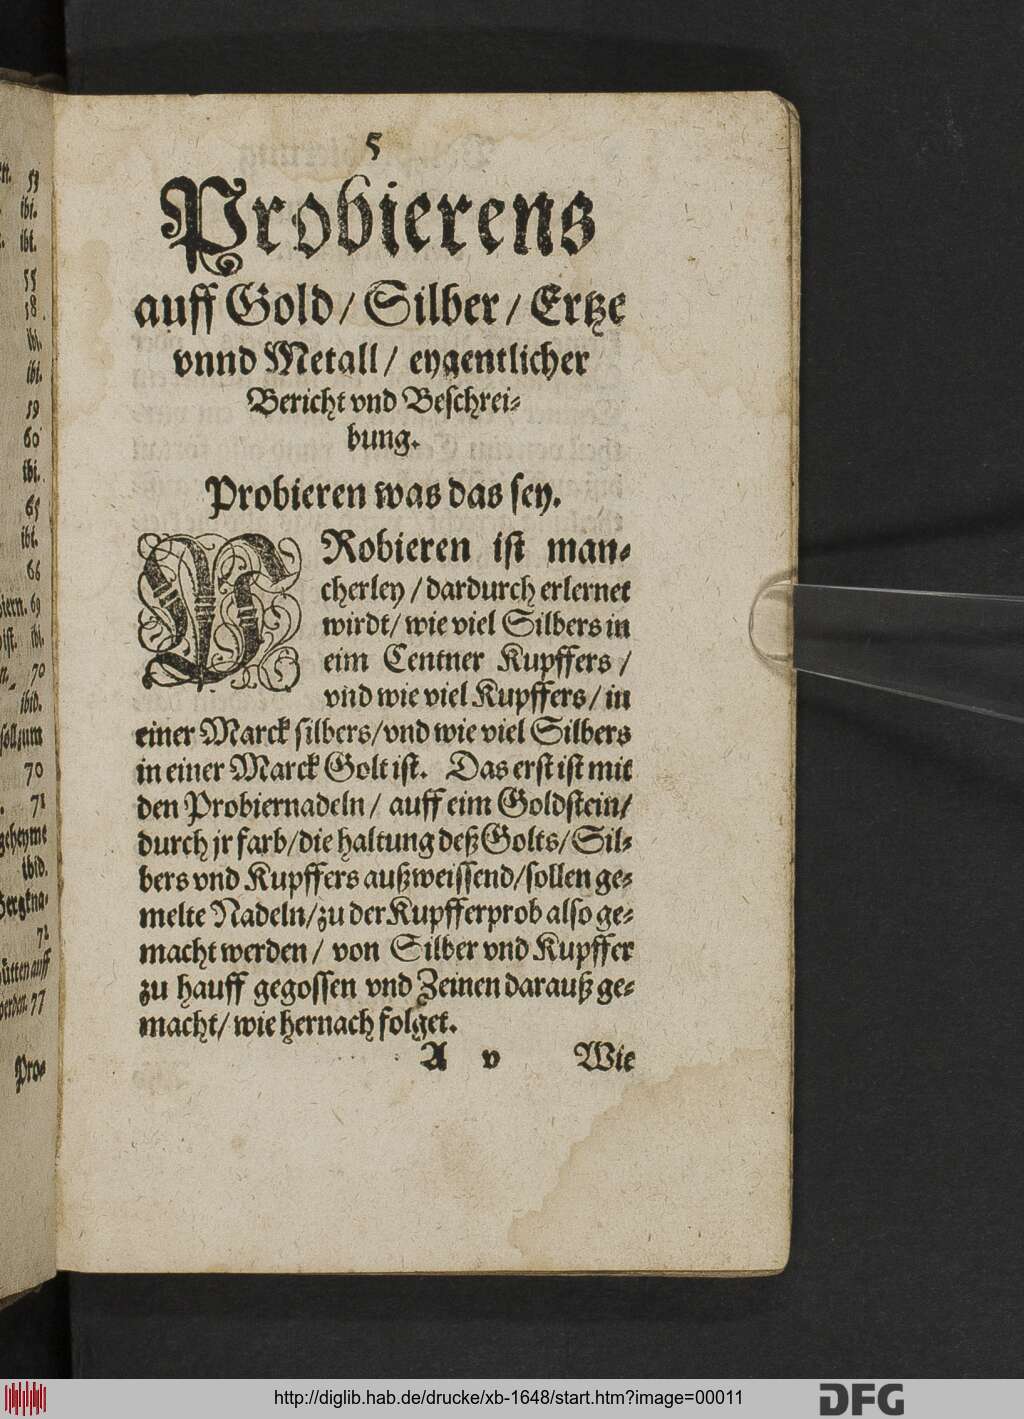 n. 53
ibi.
. ibi.
55
58
ibi.
59
60
ibi.
65
ibi.
66
iern. 69
ist. ibi.
n. 70
ibid.
soll zum
70
. 71
geheyme
ibid.
Bergkna⸗
71
hütten auff
werden. 77
Pro⸗
5
Probierens
auff Gold/ Silber/ Ertze
vnnd Metall/ eygentlicher
Bericht vnd Beschrei⸗
bung.
Probieren was das sey.
PRobieren ist man⸗
cherley / dardurch erlernet
wirdt/ wie viel Silbers in
eim Centner Kupffers /
vnd wie viel Kupffers/ in
einer Marck silbers/vnd wie viel Silbers
in einer Marck Golt ist. Das erst ist mit
den Probiernadeln/ auff eim Goldstein/
durch jr farb/die haltung deß Golts/ Sil⸗
bers vnd Kupffers außweissend/sollen ge⸗
melte Nadeln/zu der Kupfferprob also ge⸗
macht werden/ von Silber vnd Kupffer
zu hauff gegossen vnd Zeinen darauß ge⸗
macht/ wie hernach folget.
A v Wie
http://diglib.hab.de/drucke/xb-1648/start.htm?image=00011
DFG